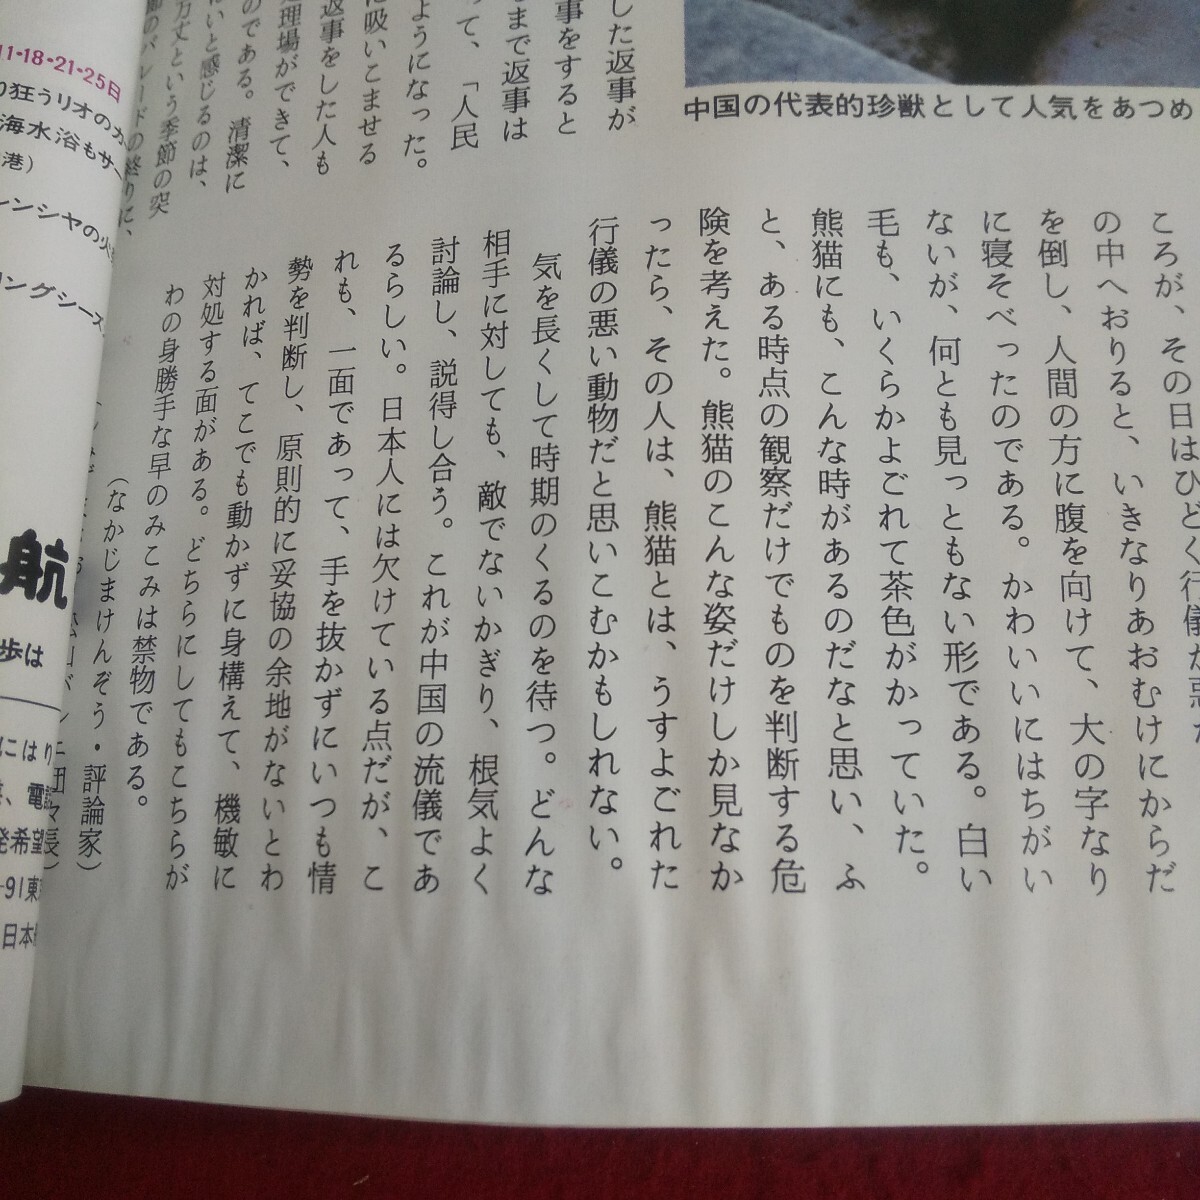 中国の代表的珍獣として人気をあつめ
した返事が
事をすると
まで返事は
って、「人民
ようになった。
に吸いこませる
返事をした人も
処理場ができて、
のである。清潔に
いと感じるのは、
万丈という季節の突
ころが、その日はひどく行儀が悪か
の中へおりると、いきなりあおむけにからだ
を倒し、人間の方に腹を向けて、大の字なり
に寝そべったのである。かわいいにはちがい
ないが、何とも見っともない形である。白い
毛も、いくらかよごれて茶色がかっていた。
熊猫にも、こんな時があるのだなと思い、ふ
と、ある時点の観察だけでものを判断する危
険を考えた。熊猫のこんな姿だけしか見なか
ったら、その人は、熊猫とは、うすよごれた
行儀の悪い動物だと思いこむかもしれない。
気を長くして時期のくるのを待つ。どんな
相手に対しても、敵でないかぎり、根気よく
討論し、説得し合う。これが中国の流儀であ
るらしい。日本人には欠けている点だが、こ
れも、一面であって、手を抜かずにいつも情
勢を判断し、原則的に妥協の余地がないとわ
かれば、てこでも動かずに身構えて、機敏に
対処する面がある。どちらにしてもこちらが
わの身勝手な早のみこみは禁物である。
(なかじまけんぞう・評論家)
11・18・21・25日
狂うリオのカ
海水浴もサ
港)
レンシヤの火
リングシーズ
航
歩は
にはり
、電話
発希望
-91東
日本